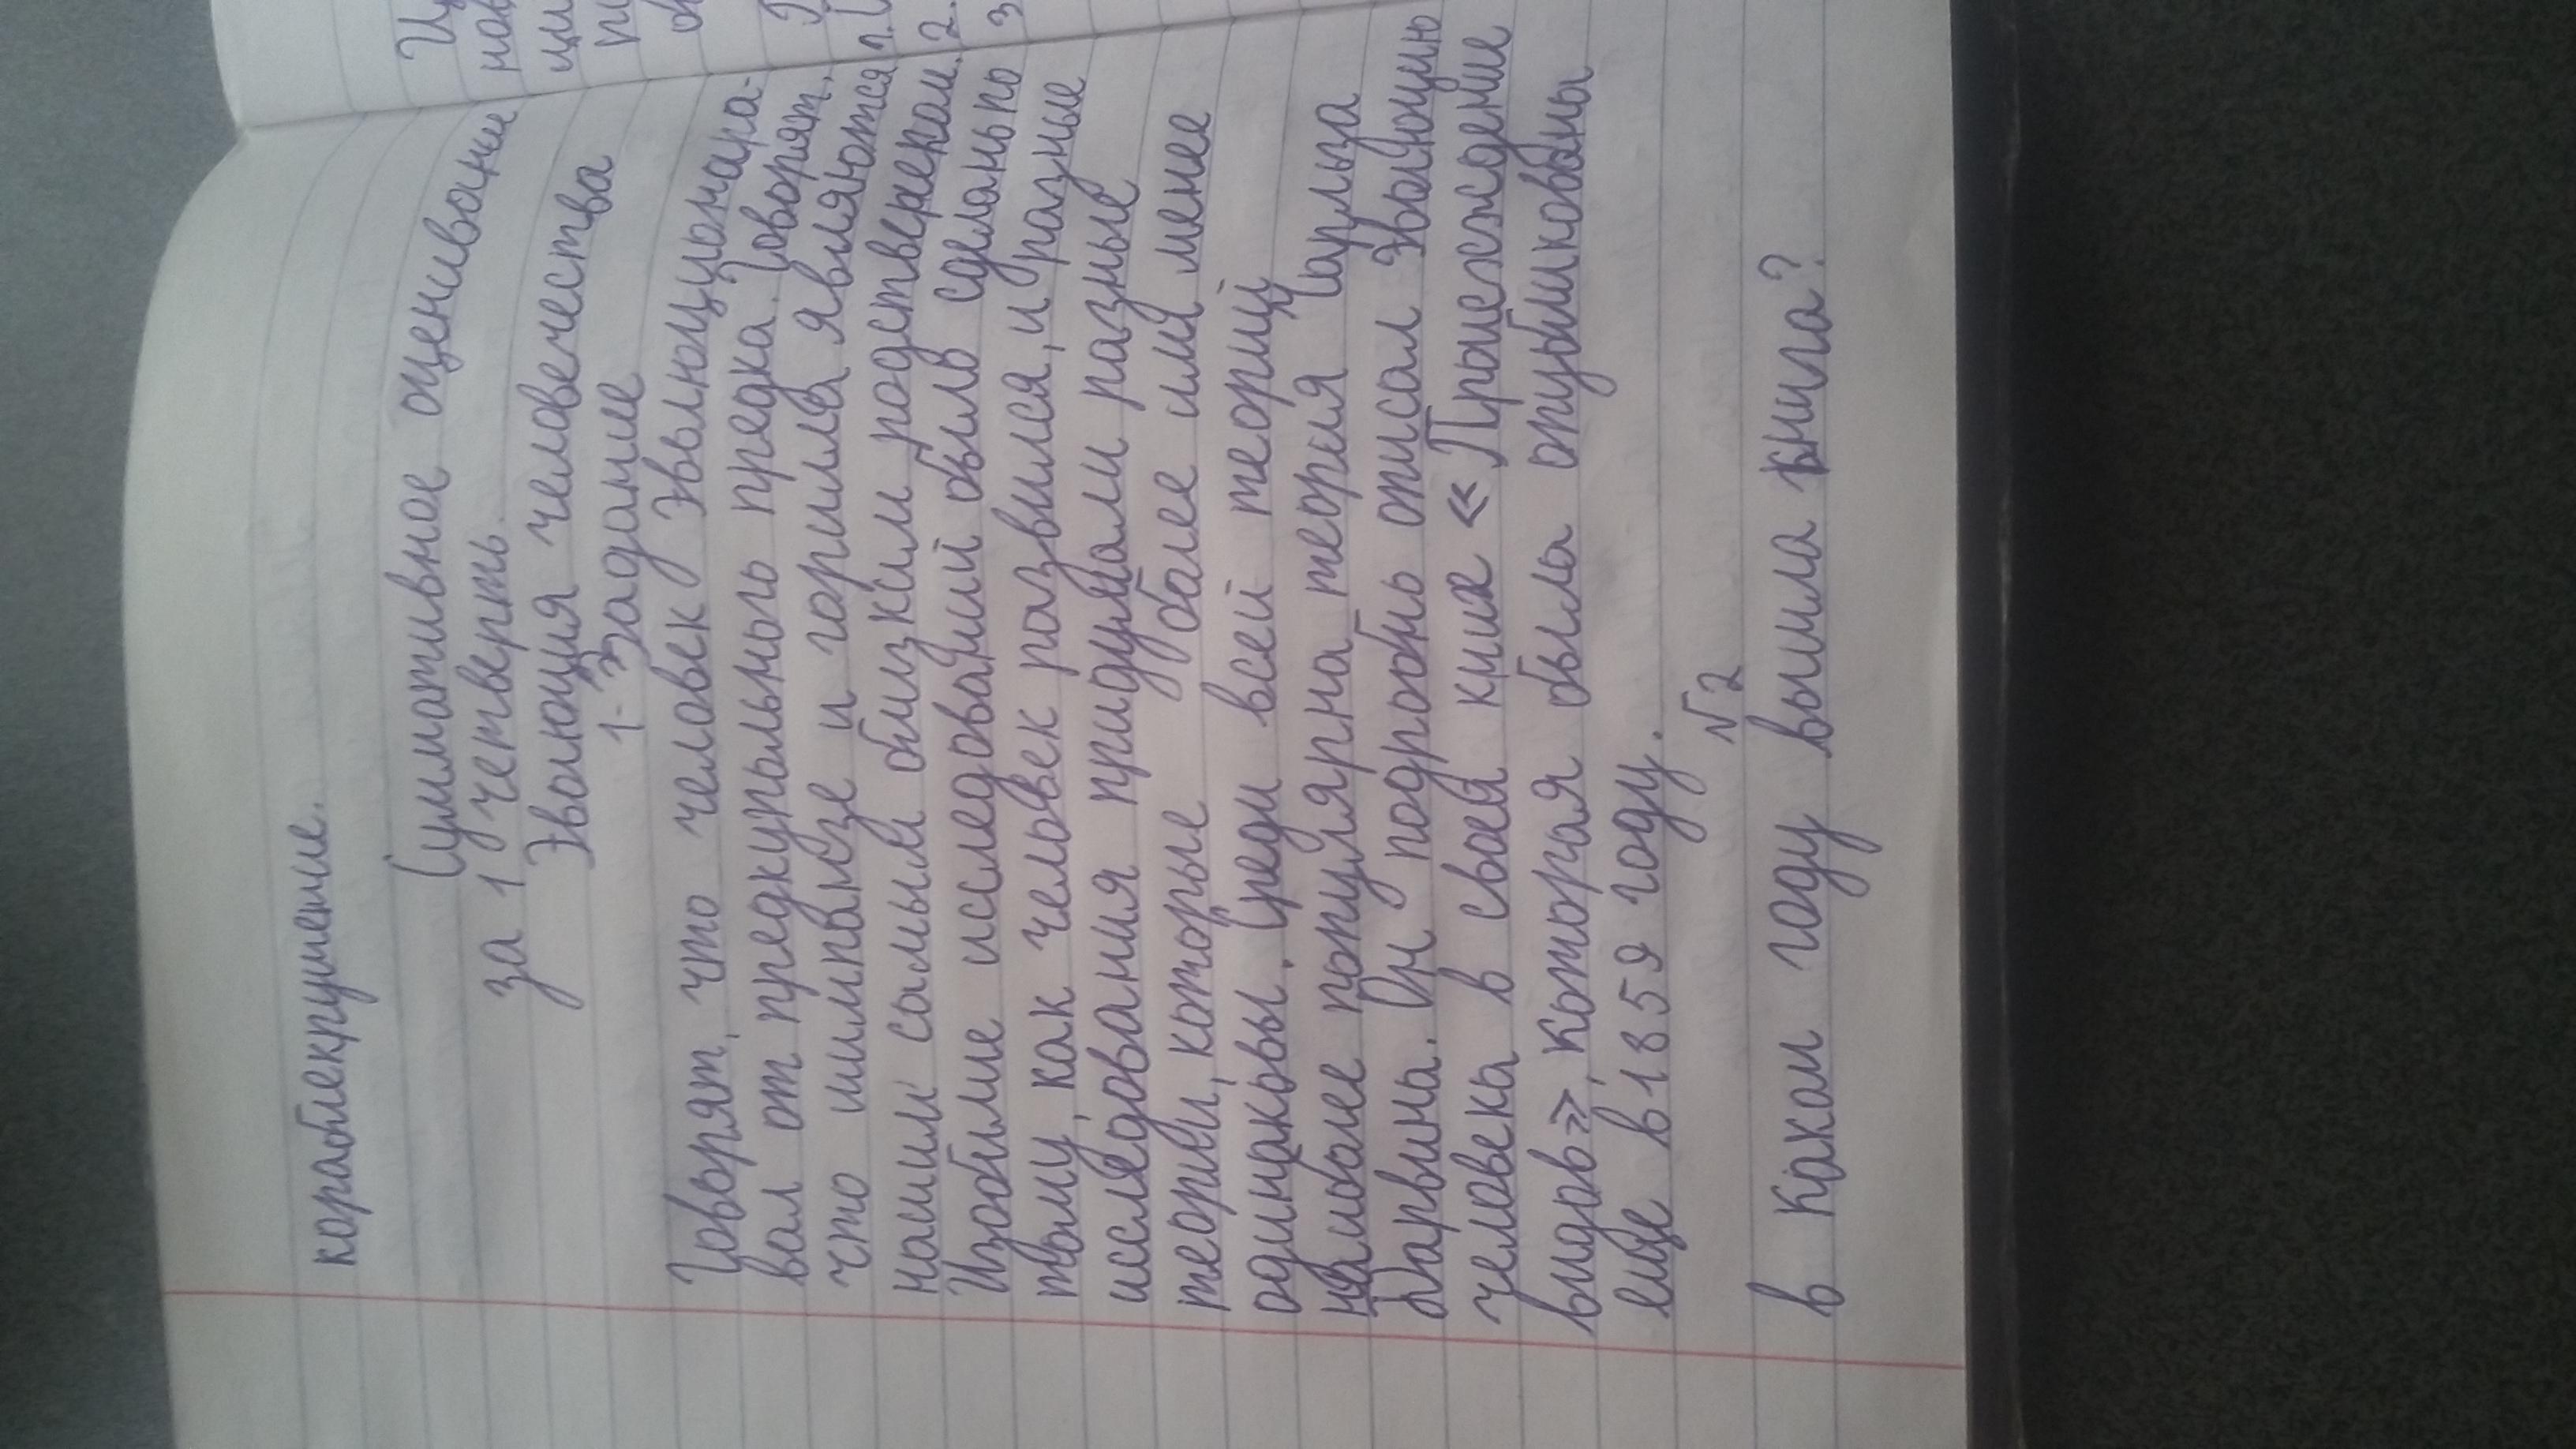 кораблекрушение.
Сумотивное оценивание
за 1 четверть.
Эволюция человечества
1-Задание
Говорят, что человек эвлюционира-
вал от предкупольного предка. Говорят,
что шимпанзе и горилла являются
нашим самым близким родственником.
Изобилие исследований было сделанько
тому, как человек развился, и разные
исследования придумали разные
теории, которые более или менее
одинаковы. Среди всей теорий
наиболее популярна теория Чарльза
Дарвина. Он подробнь описал эволюцию
человека в своей книге « Происхождение
видов», которая была опубликованы
еще в 1859 году.
№2
В каком году вышла книга?
И
нав
ци
п
1.
2.
3